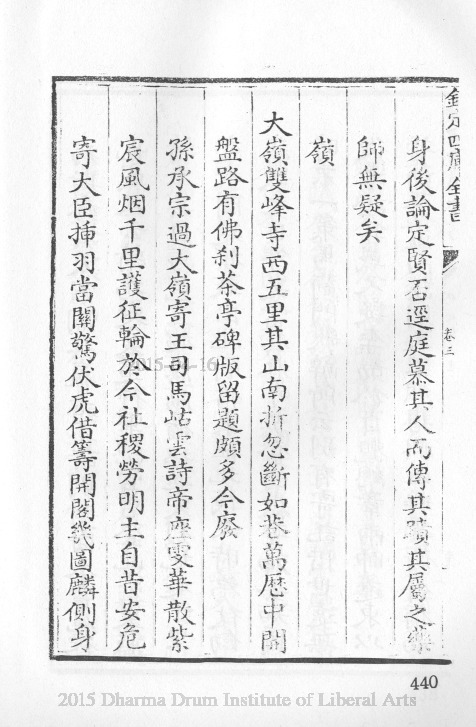 欽定四庫全書
卷三
身後論定賢否逕庭慕其人而傳其蹟其屬之寀
師無疑矣
嶺
大嶺雙峰寺西五里其山南折忽斷如巷萬歷中開
盤路有佛刹茶亭碑版留題頗多今廢
孫承宗過大嶺寄王司馬岵雲詩帝座雯華散紫
宸風烟千里護征輪於今社稷勞明主自昔安危
寄大臣揷羽當關驚伏虎借籌開閣幾圖麟側身
440
2015 Dharma Drum Institute of Liberal Arts